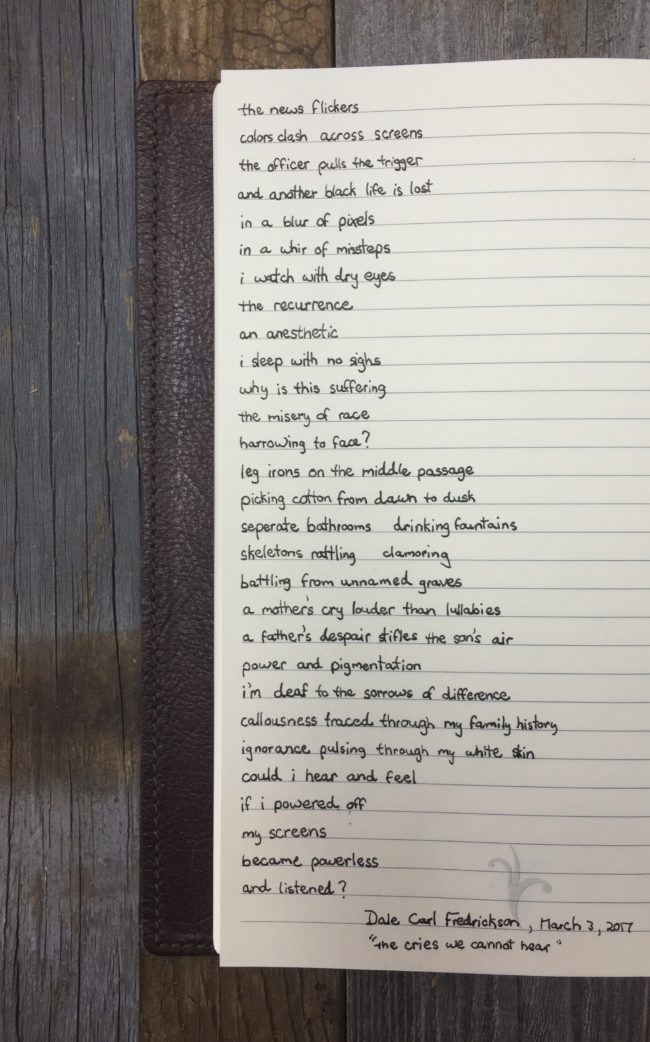 the news flickers
colors clash across screens
the officer pulls the trigger
and another black life is lost
in a blur of pixels
in a whir of missteps
i watch with dry eyes
the recurrence
an anesthetic
i sleep with no sighs
why is this suffering
the misery of race
harrowing to face?
leg irons on the middle passage
picking cotton from dawn to dusk
seperate bathrooms drinking fountains
skeletons rattling clamoring
battling from unnamed graves
a mother's cry louder than lullabies
a father's despair stifles the son's air
power and pigmentation
i'm deaf to the sorrows of difference
callousness traced through my family history
ignorance pulsing through my white skin
could i hear and feel
if i powered off
my screens
became powerless
and listened?
Dale Carl Fredrickson, March 3, 2017
"the cries we cannot hear"